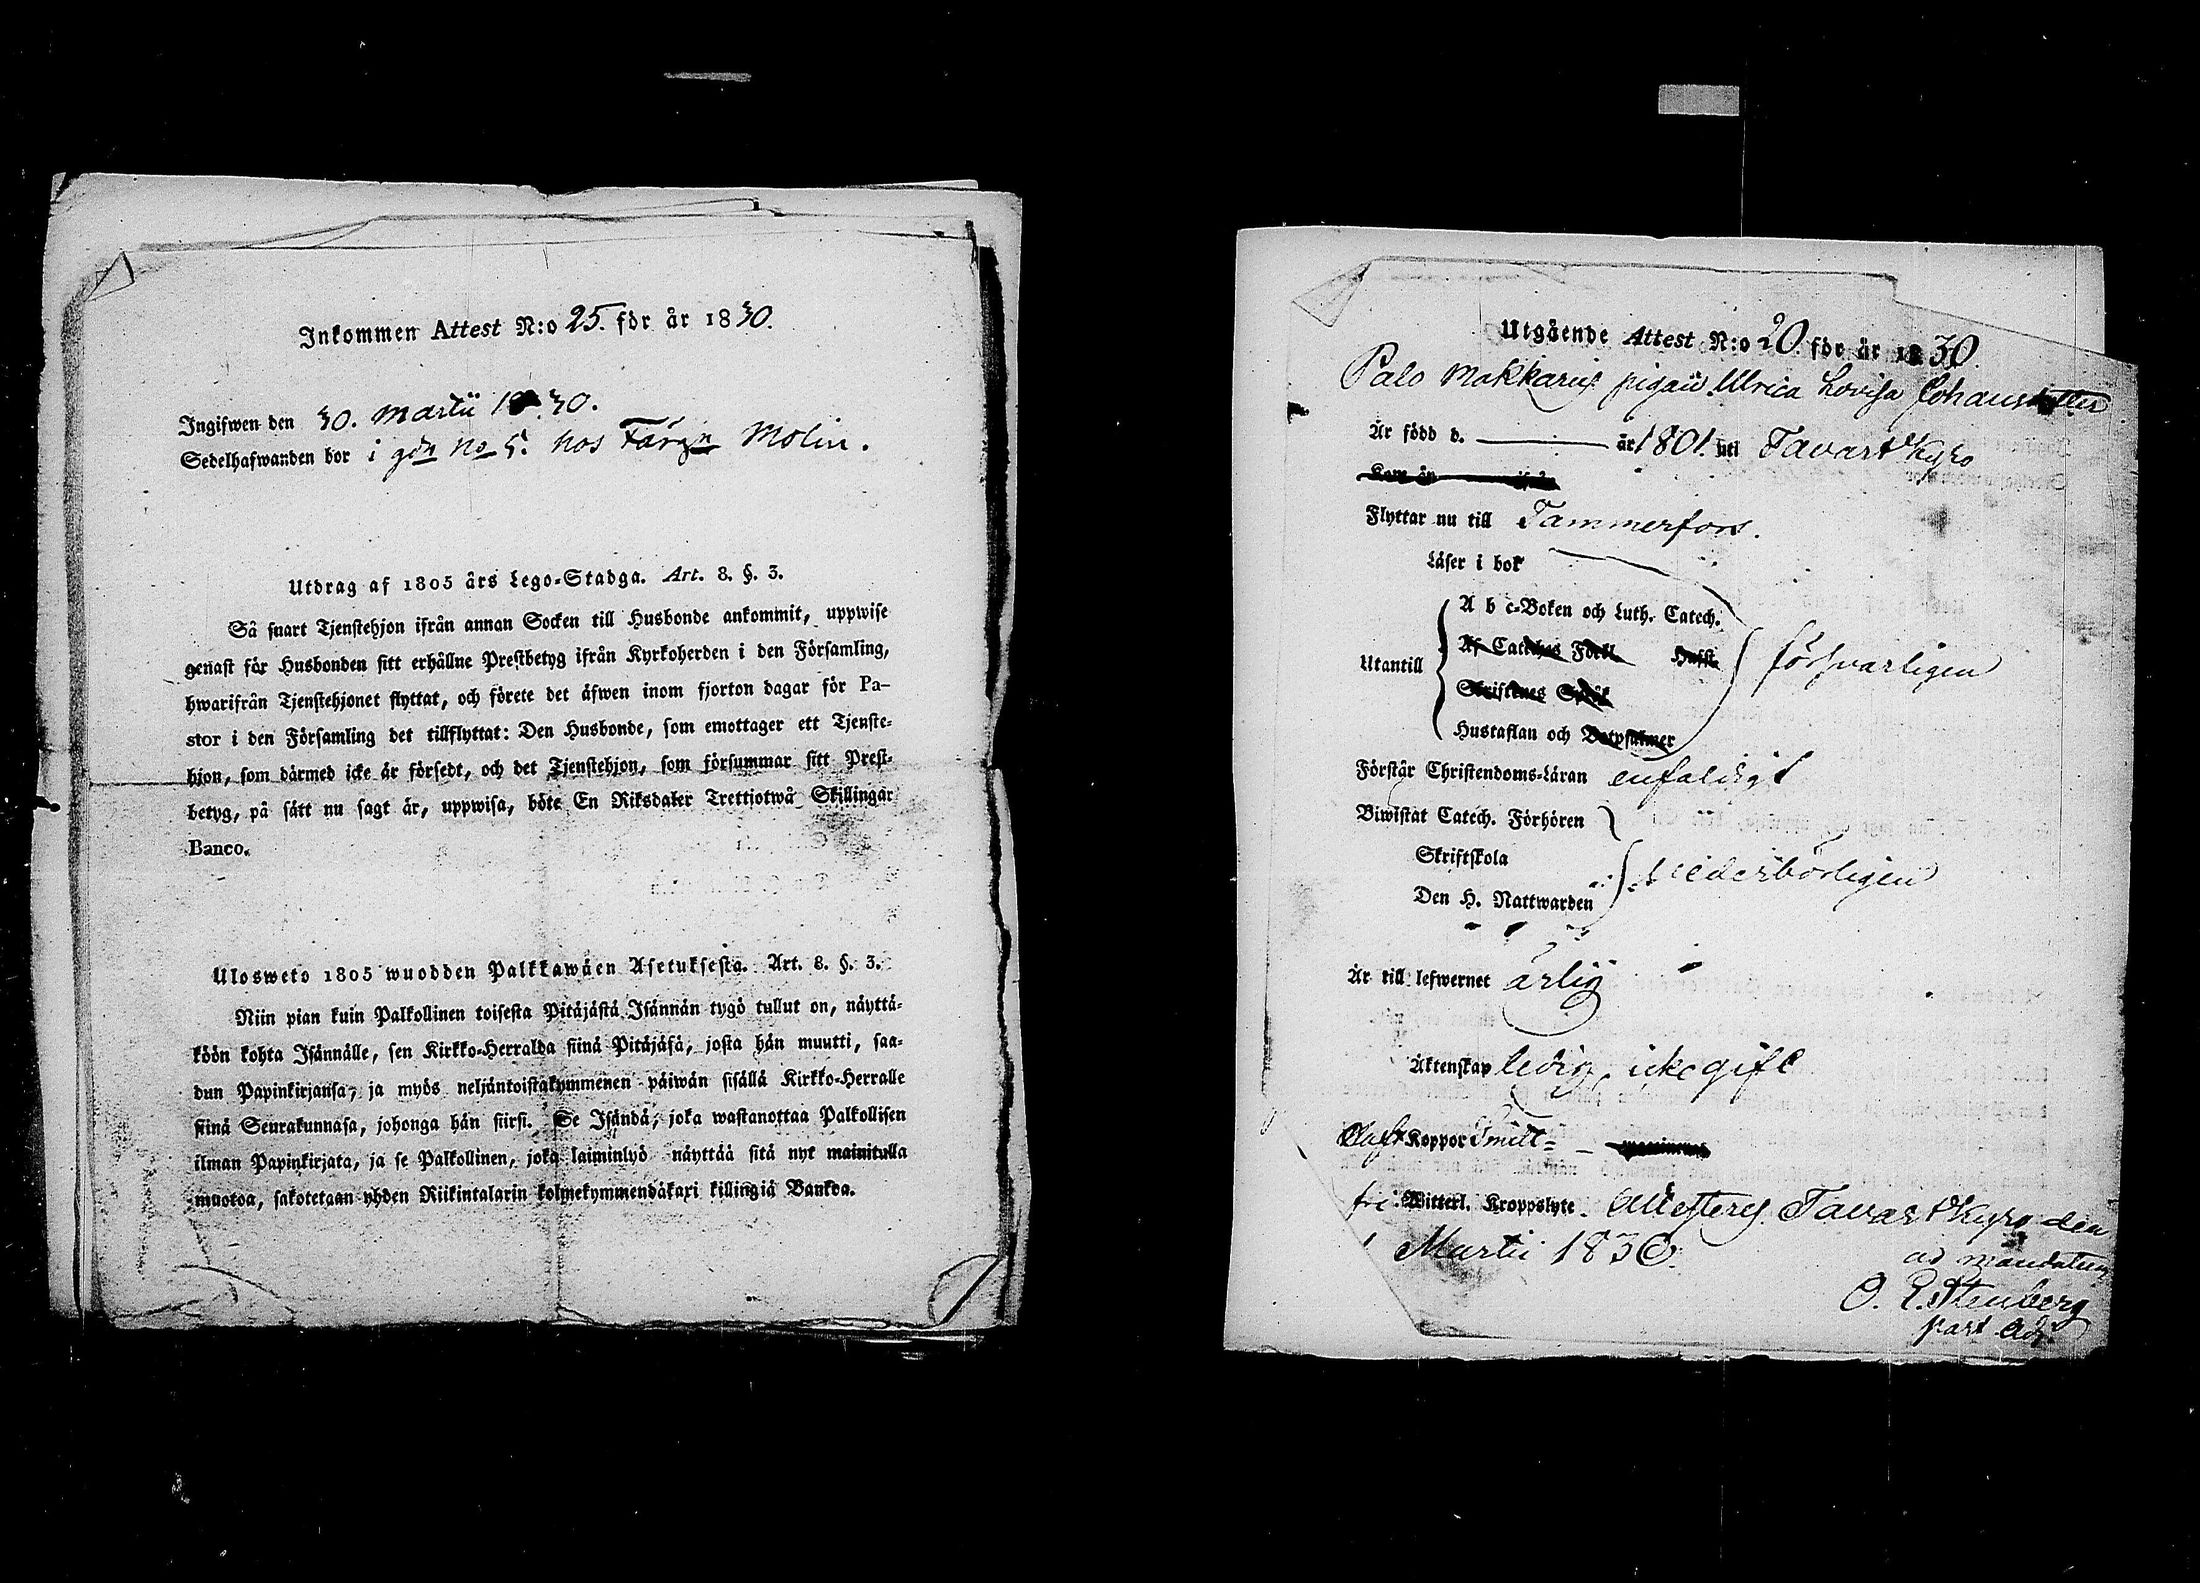 Inkommen Attest N:o 25. för år 1830.
Ingifwen den 30. martii 1830.
Sedelhafwanden bor i gdn No 5. hos Färgn Molin.
Utdrag af 1805 års Lego-Stadga. Art. 8. §. 3.
Så snart Tjenstehjon ifrån annan Socken till Husbonde ankommit, uppwise
genast för Husbonden sitt erhållne Prestbetyg ifrån Kyrkoherden i den Församling,
hwarifrån Tjenstehjonet flyttat, och förete det äfwen inom fjorton dagar för Pa-
stor i den Församling det tillflyttat: Den Husbonde, som emottager ett Tjenste-
hjon, som därmed icke är försedt, och det Tjenstehjon, som försummar sitt Prest-
betyg, på sätt nu sagt är, uppwisa, böte En Riksdaler Trettjotwå Skillingar
Banco.
Ulosweto 1805 wuodden Palkkawäen Asetuksesta. Art. 8. §. 3.
Niin pian kuin Palkollinen toisesta Pitäjästä Isännän tygö tullut on, näyttä-
köön kohta Isännälle, sen Kirkko-Herralda siinä Pitäjäsä, josta hän muutti, saa-
dun Papinkirjansa, ja myös neljäntoistakymmenen päiwän sisällä Kirkko-Herralle
siinä Seurakunnasa, johonga hän siirsi. Se Isändä, joka wastanottaa Palkollisen
ilman Papinkirjata, ja se Palkollinen, joka laiminlyö näyttää sitä nyt mainitulla
muotoa, sakotetaan yhden Riikintalarin kolmekymmendäkaxi killingiä Bankoa.
Utgående Attest N:o 20 för år 1830.
Palo Makkaris pigan Ulrica Lovisa Johansdotter
Är född d. år 1801. uti Tavastkyro
Kom år ifrån
Flyttar nu till Tammerfors.
Läser i bok
A b c-Boken och Luth. Catech.
Af Cateches Förkl. Hufst.
Utantill försvarligen
Skriftenes Språk
Hustaflan och Botpsalmer
Förstår Christendoms-Läran enfaldigt
Biwistat Catech. Förhören
Skriftskola
Den H. Nattwarden wederbörligen
Är till lefwernet ärlig
Äktenskap ledig icke gift
Haft Koppor Smitt=
fri: Witterl. Kroppslyte. Attesteras Tavastkyro den
1 Martii 1830.
ad mandatum
O. E. Stenberg
past. Adj.